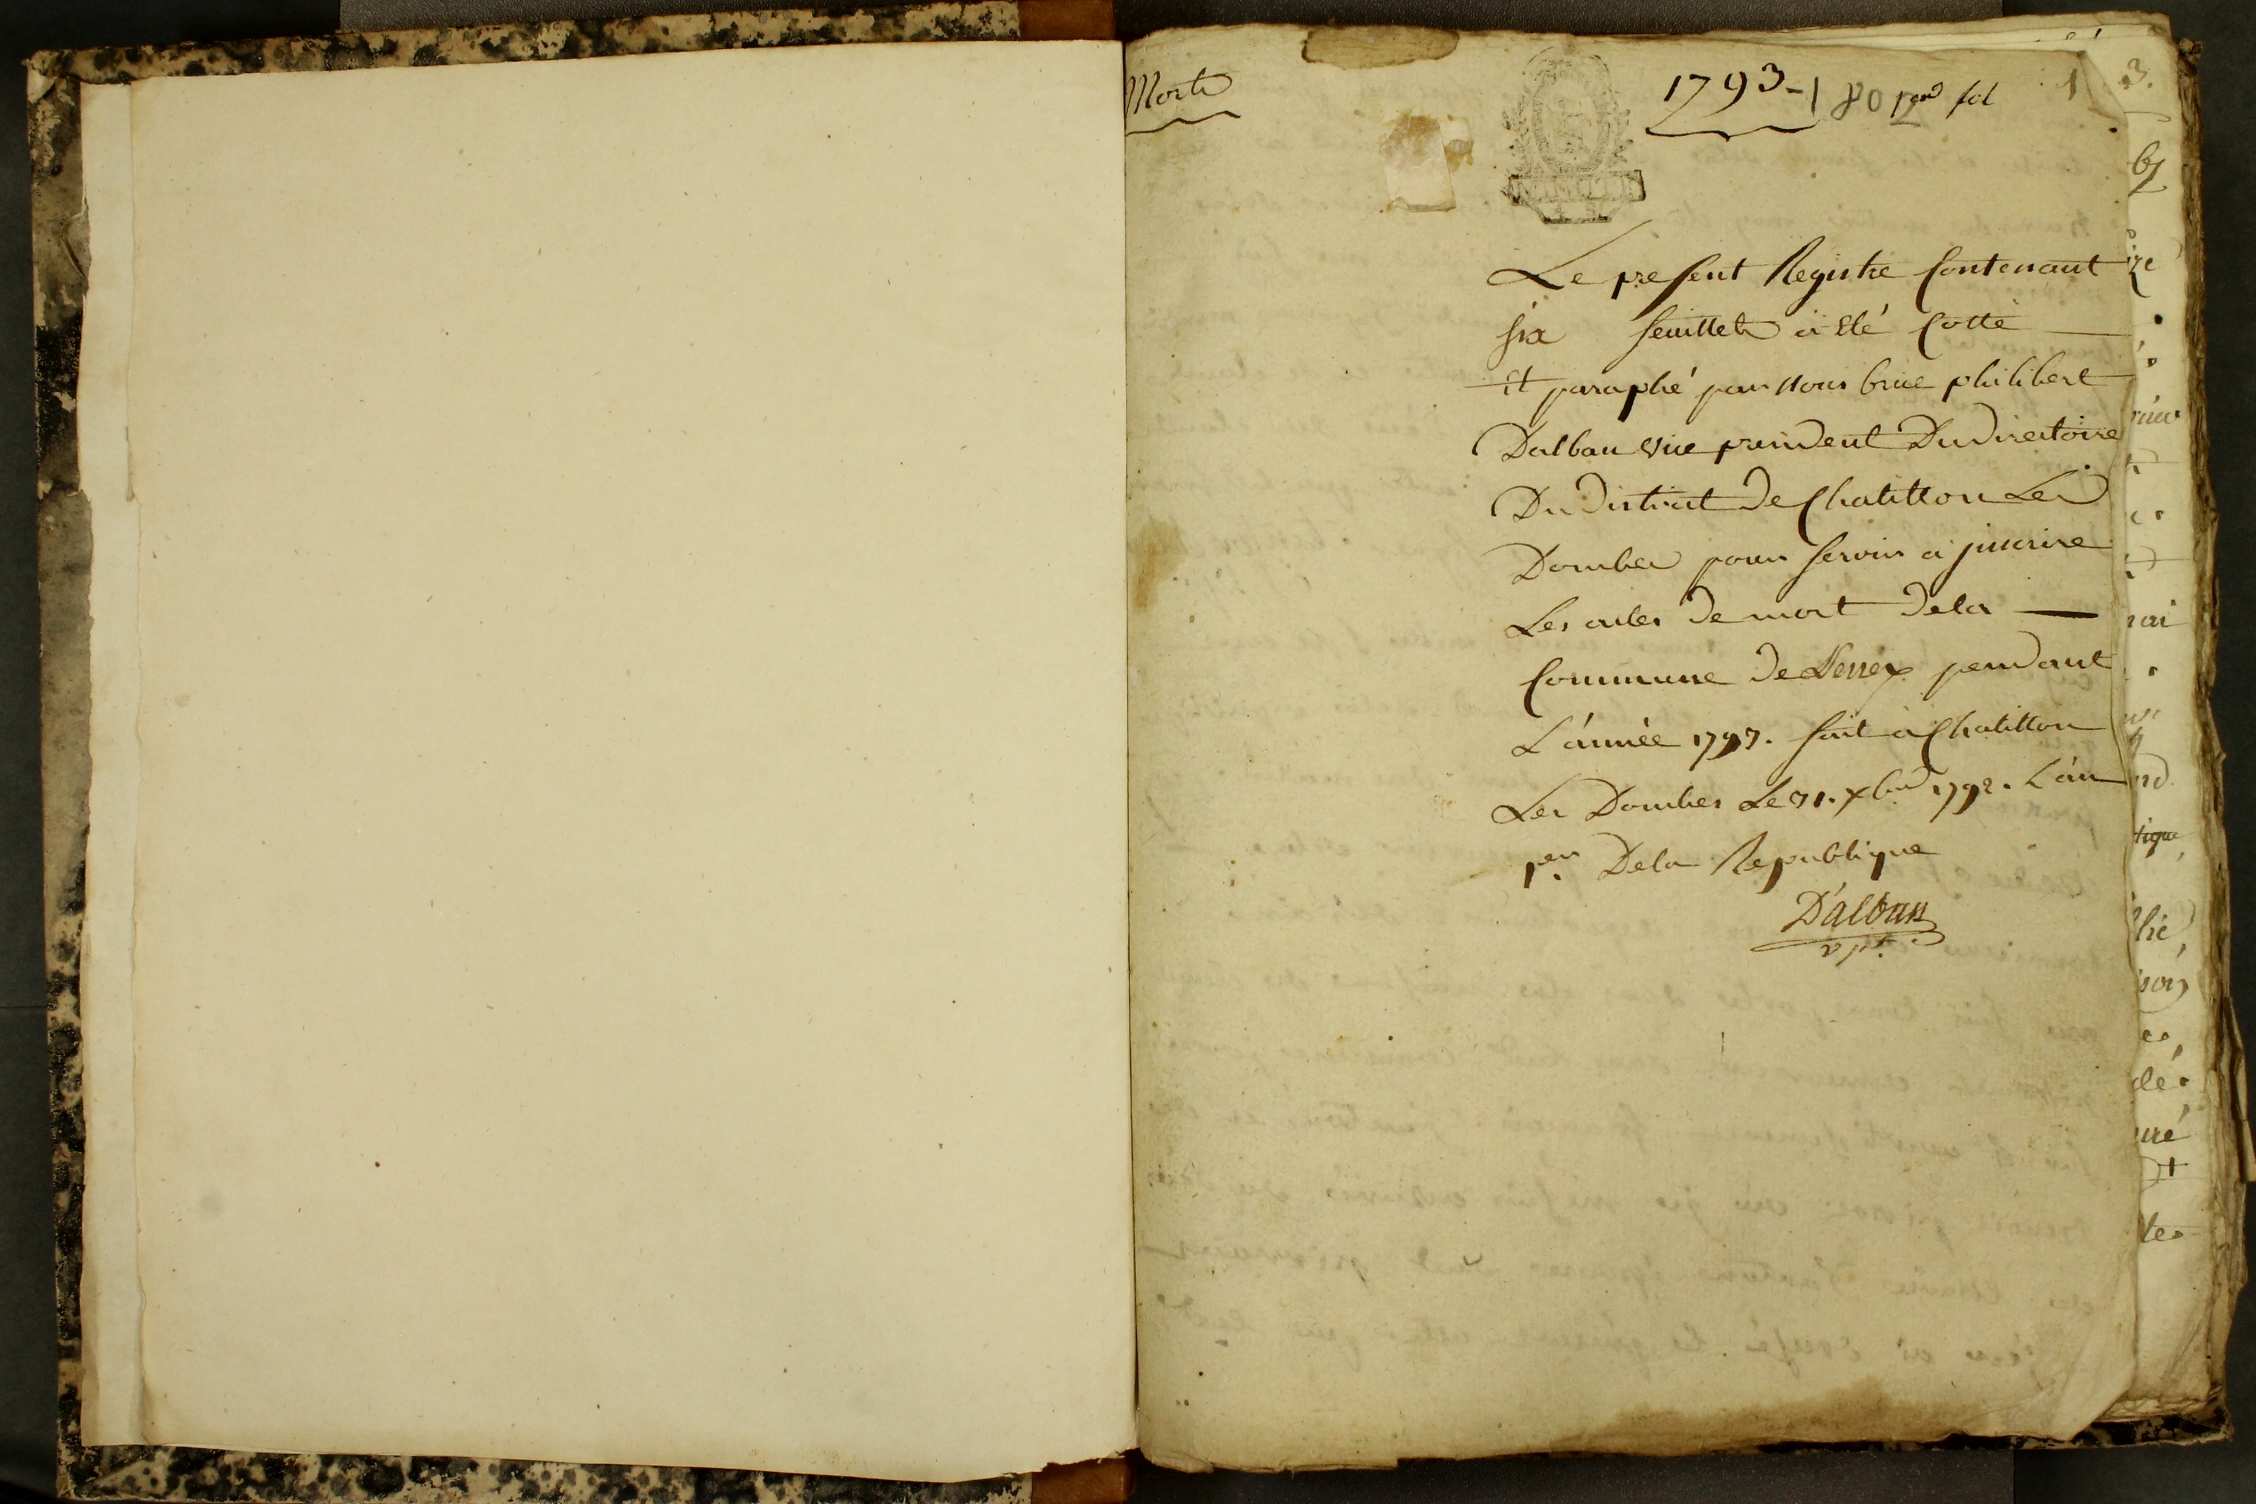 Morts
1793-180
1er fol
1
3.
Le present Registre Contenant
six feuillets a été Cotté
et paraphé par nous brice philibert
Dalban vice president Du directoire
Du district De Chatillon Les
Dombes pour servir a jnscrire
Les actes De mort De la
Commune De Perrex pendant
L'année 1793. fait a Chatillon
Les Dombes Le 31. Xbre 1792. L'an
1er De la Republique
D'alban
v pt.